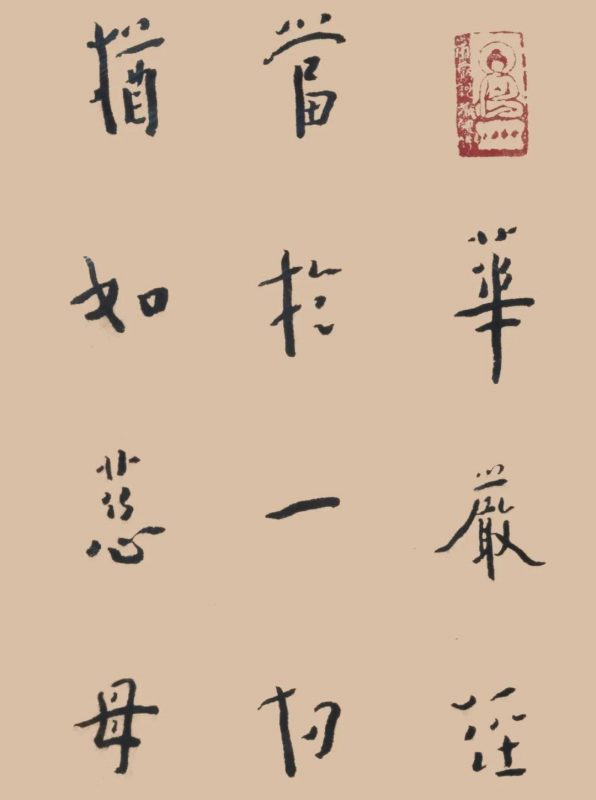 華嚴經
當於一切
猶如慈母